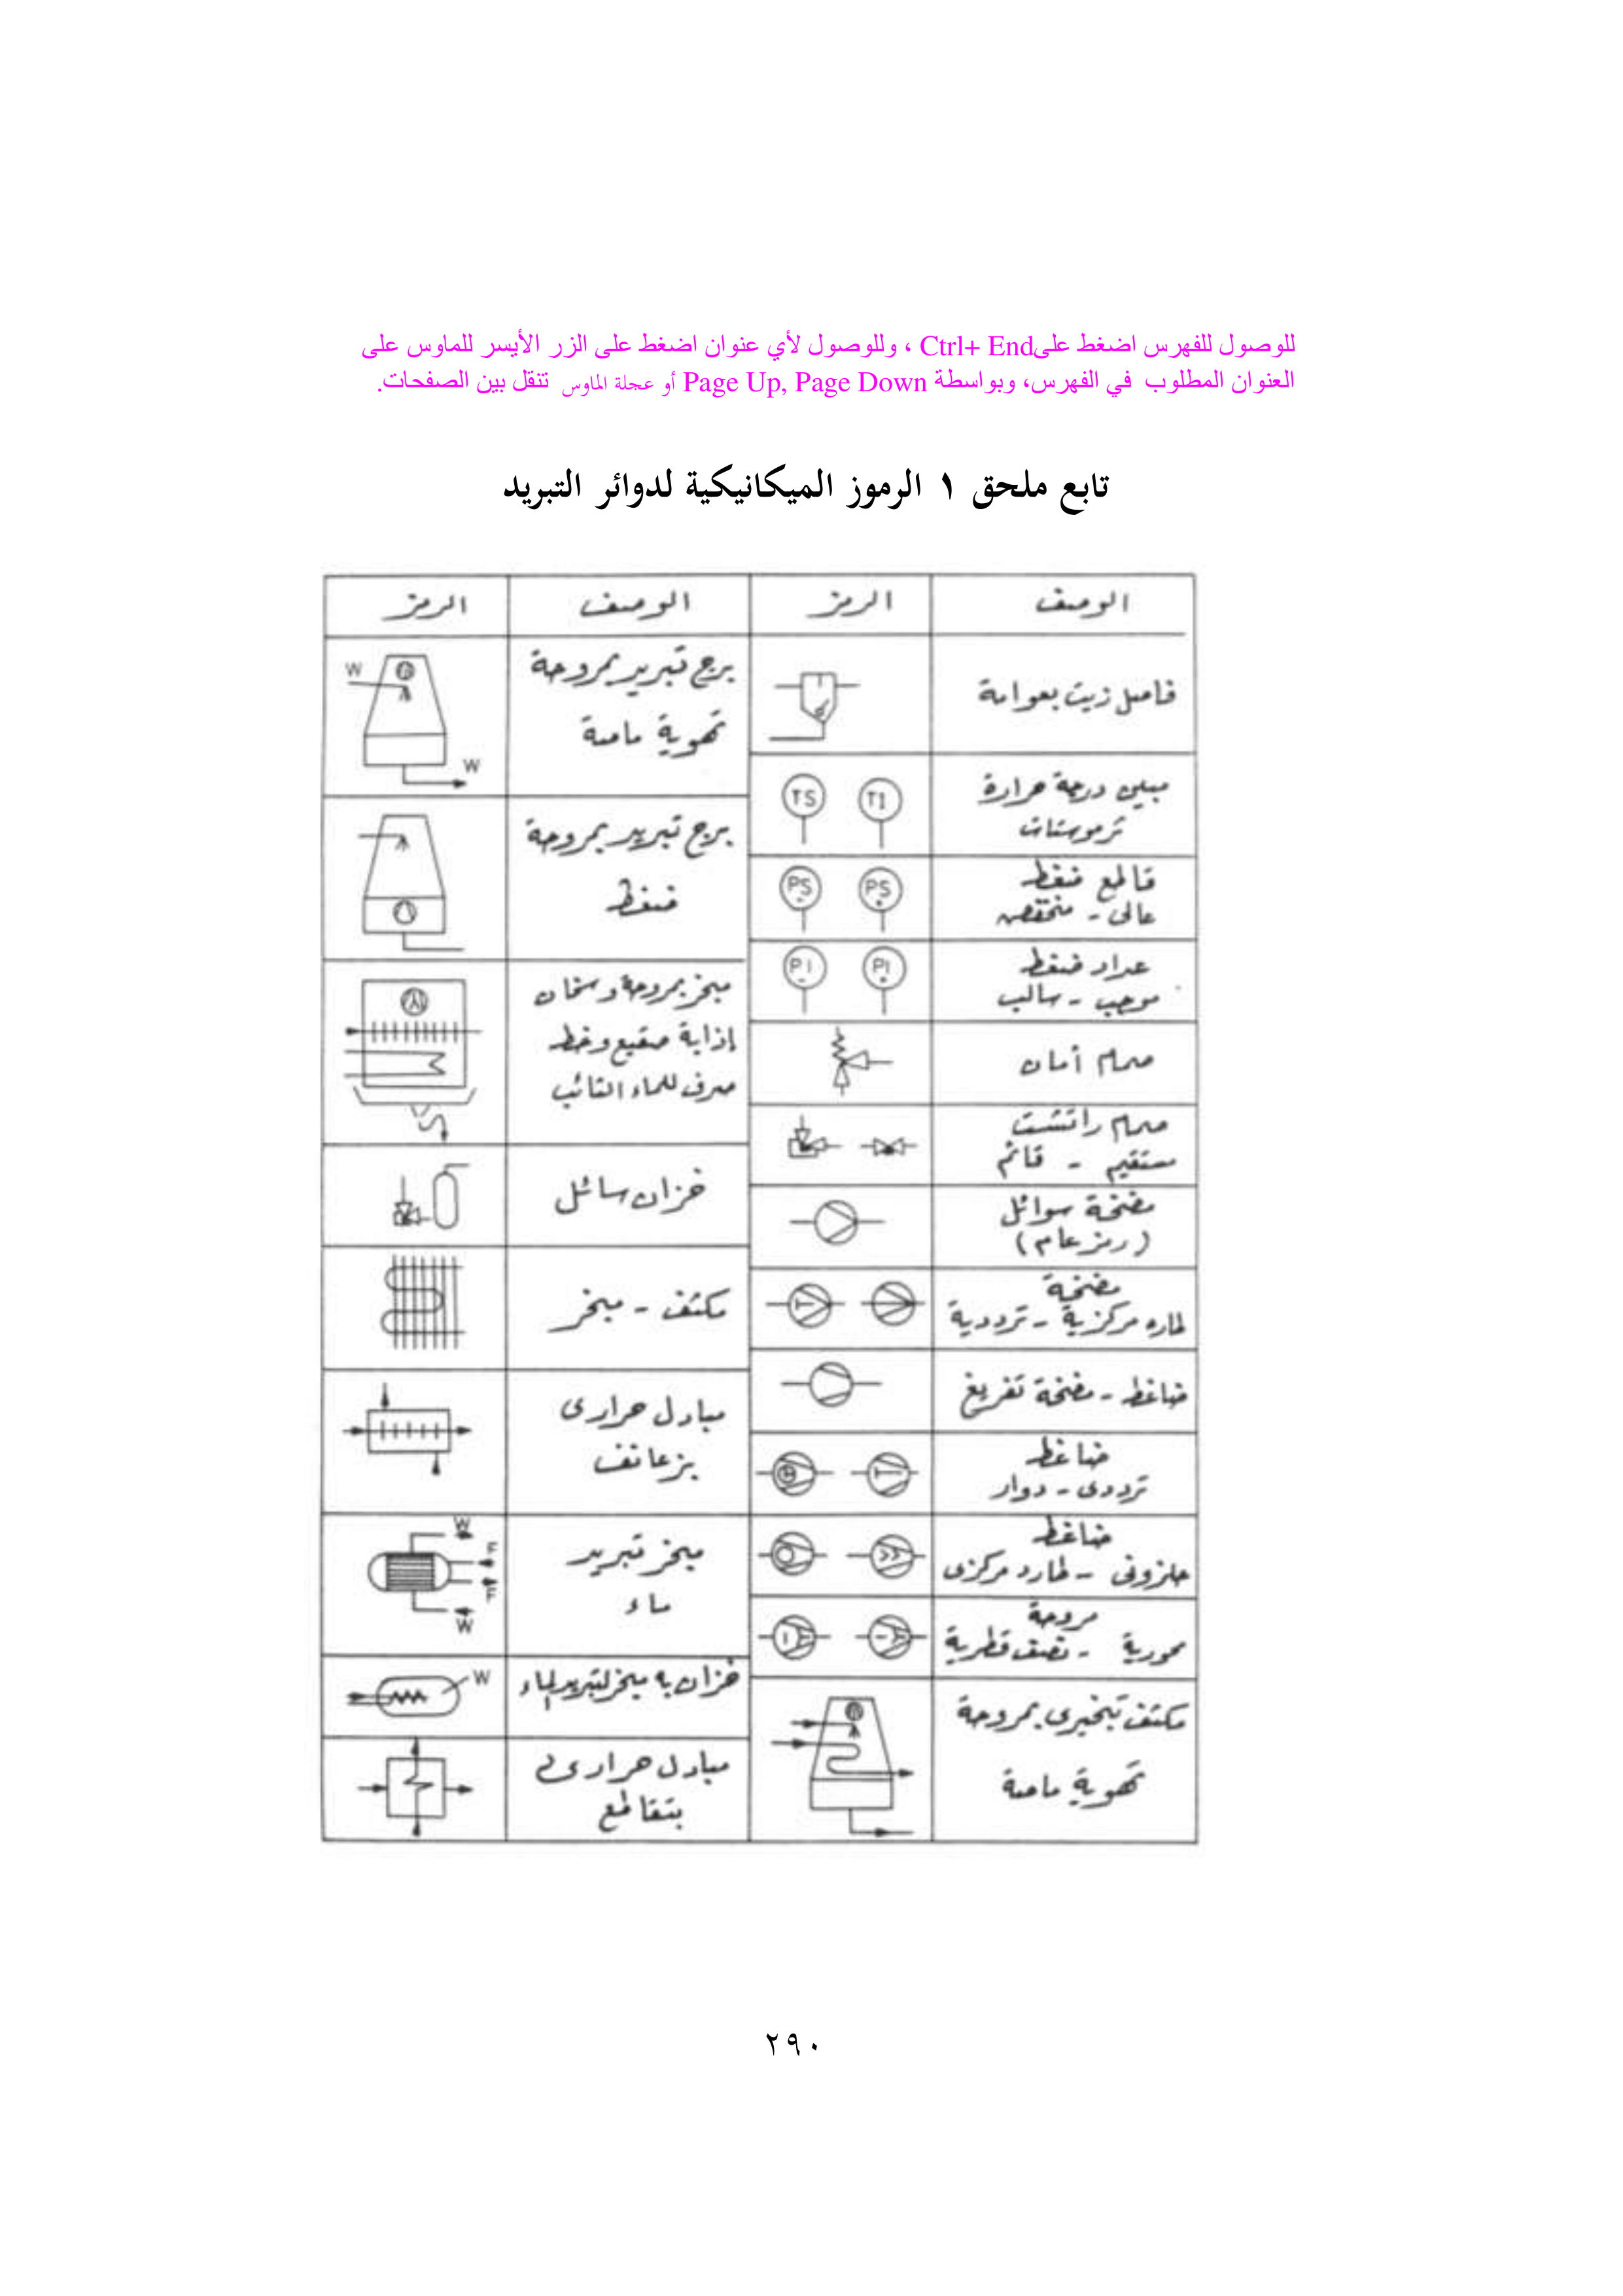 للوصول للفهرس اضغط على Ctrl+ End ، وللوصول لأي عنوان اضغط على الزر الأيسر للماوس على
العنوان المطلوب في الفهرس، وبواسطة Page Up, Page Down أو عجلة الماوس تنقل بين الصفحات.
تابع ملحق ١ الرموز الميكانيكية لدوائر التبريد
الوصف
الرمز
الوصف
الرمز
فاصل زيت بعوامة
مبين درجة حرارة
ترموستات
TS TI
قاطع ضغط
عالى - منخفض
PS PS
عداد ضغط
موجب - سالب
PI PI
صمام أمان
صمام راتشت
مستقيم - قائم
مضخة سوائل
(رمز عام)
مضخة
طارد مركزية - ترددية
ضاغط - مضخة تفريغ
ضاغط
ترددى - دوار
ضاغط
حلزونى - طارد مركزى
مروحة
محورية - نصف قطرية
مكثف تبخيرى بمروحة
تهوية ماصة
برج تبريد بمروحة
تهوية ماصة
W
W
برج تبريد بمروحة
ضغط
مبخر بمروحة وسخان
إذابة صقيع وخط
صرف للماء الذائب
خزان سائل
مكثف - مبخر
مبادل حرارى
بزعانف
مبخر تبريد
ماء
W
F
F
W
خزان به مبخر لتبريد الماء
W
مبادل حرارى
بتقاطع
٢٩٠